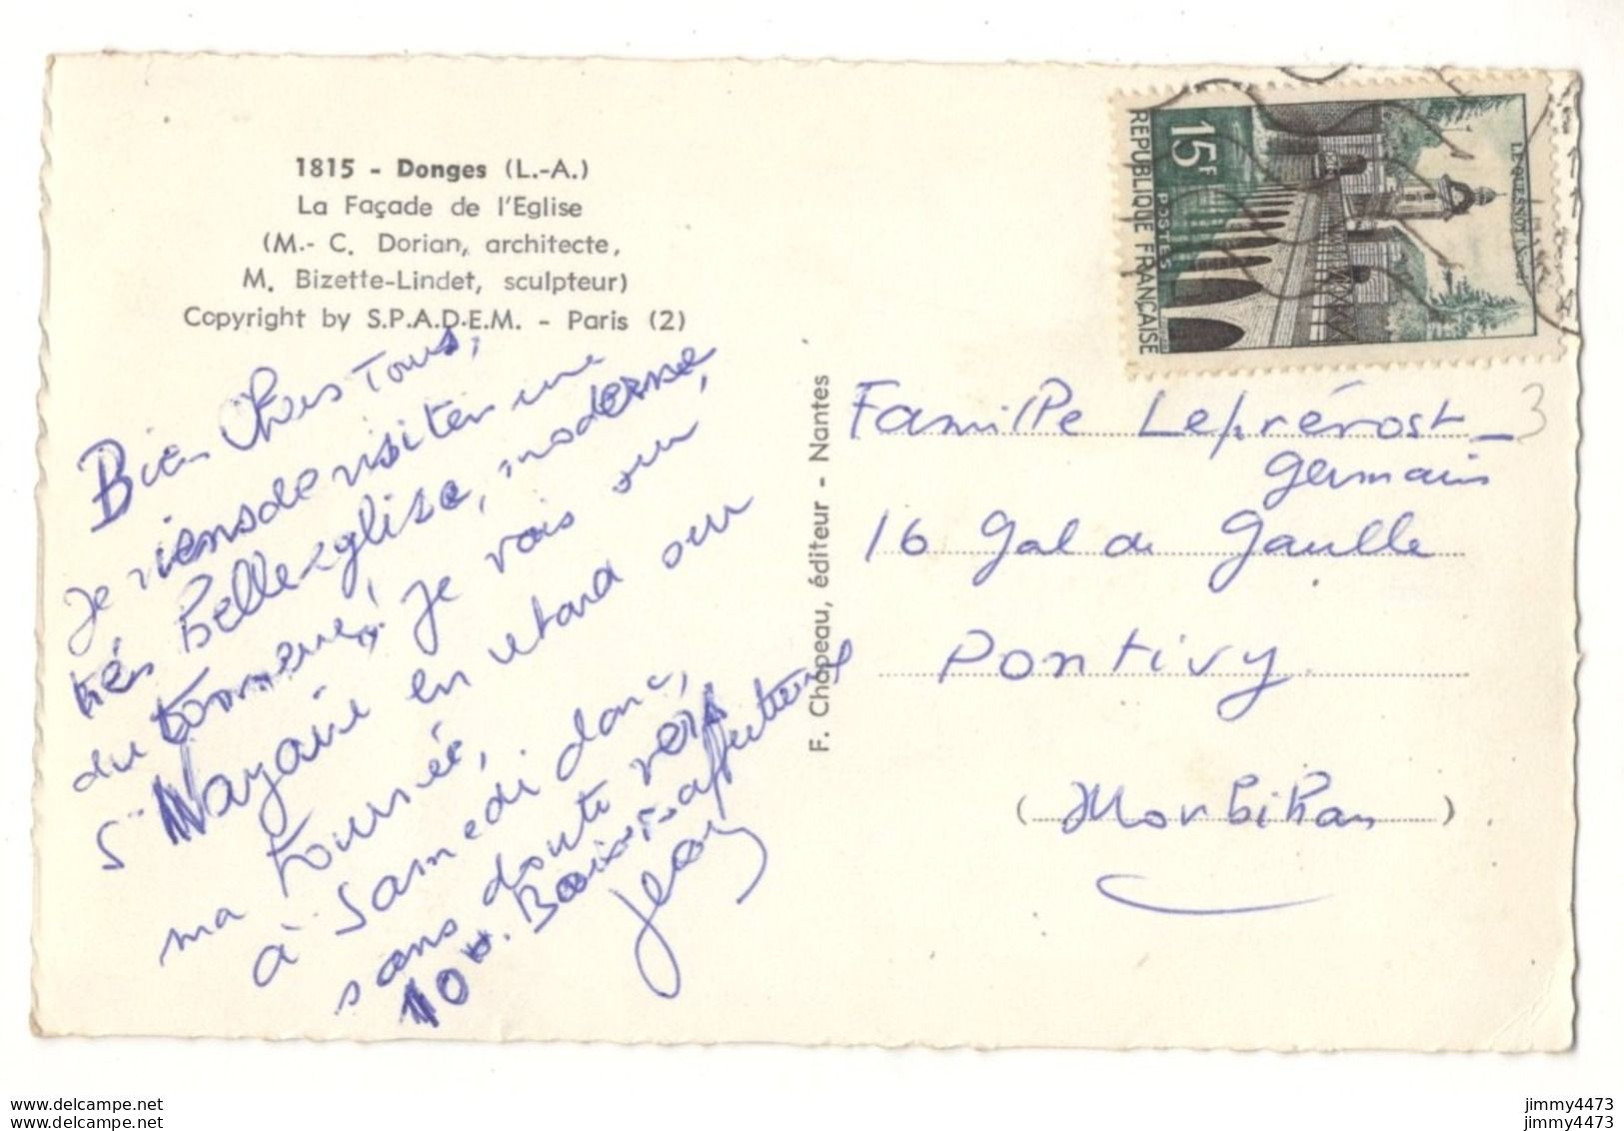 1815 - Donges (L.-A.)
La Façade de l'Eglise
(M.- C. Dorian, architecte,
M. Bizette-Lindet, sculpteur)
Copyright by S.P.A.D.E.M. - Paris (2)
Bien Chers Tous,
Je viens de visiter une
très belle église, moderne,
du tonnerre! je vais sur
St Nazaire en retard sur
ma tournée,
à Samedi donc,
sans doute vers
10 h. Baisers affectueux
Jean
F. Chapeau, éditeur - Nantes
15F
POSTES
REPUBLIQUE FRANÇAISE
LE QUESNOY (Nord)
Famille Leprévost
germain
16 Gal de Gaulle
Pontivy
(Morbihan)
3
www.delcampe.net
www.delcampe.net
jimmy4473
jimmy4473